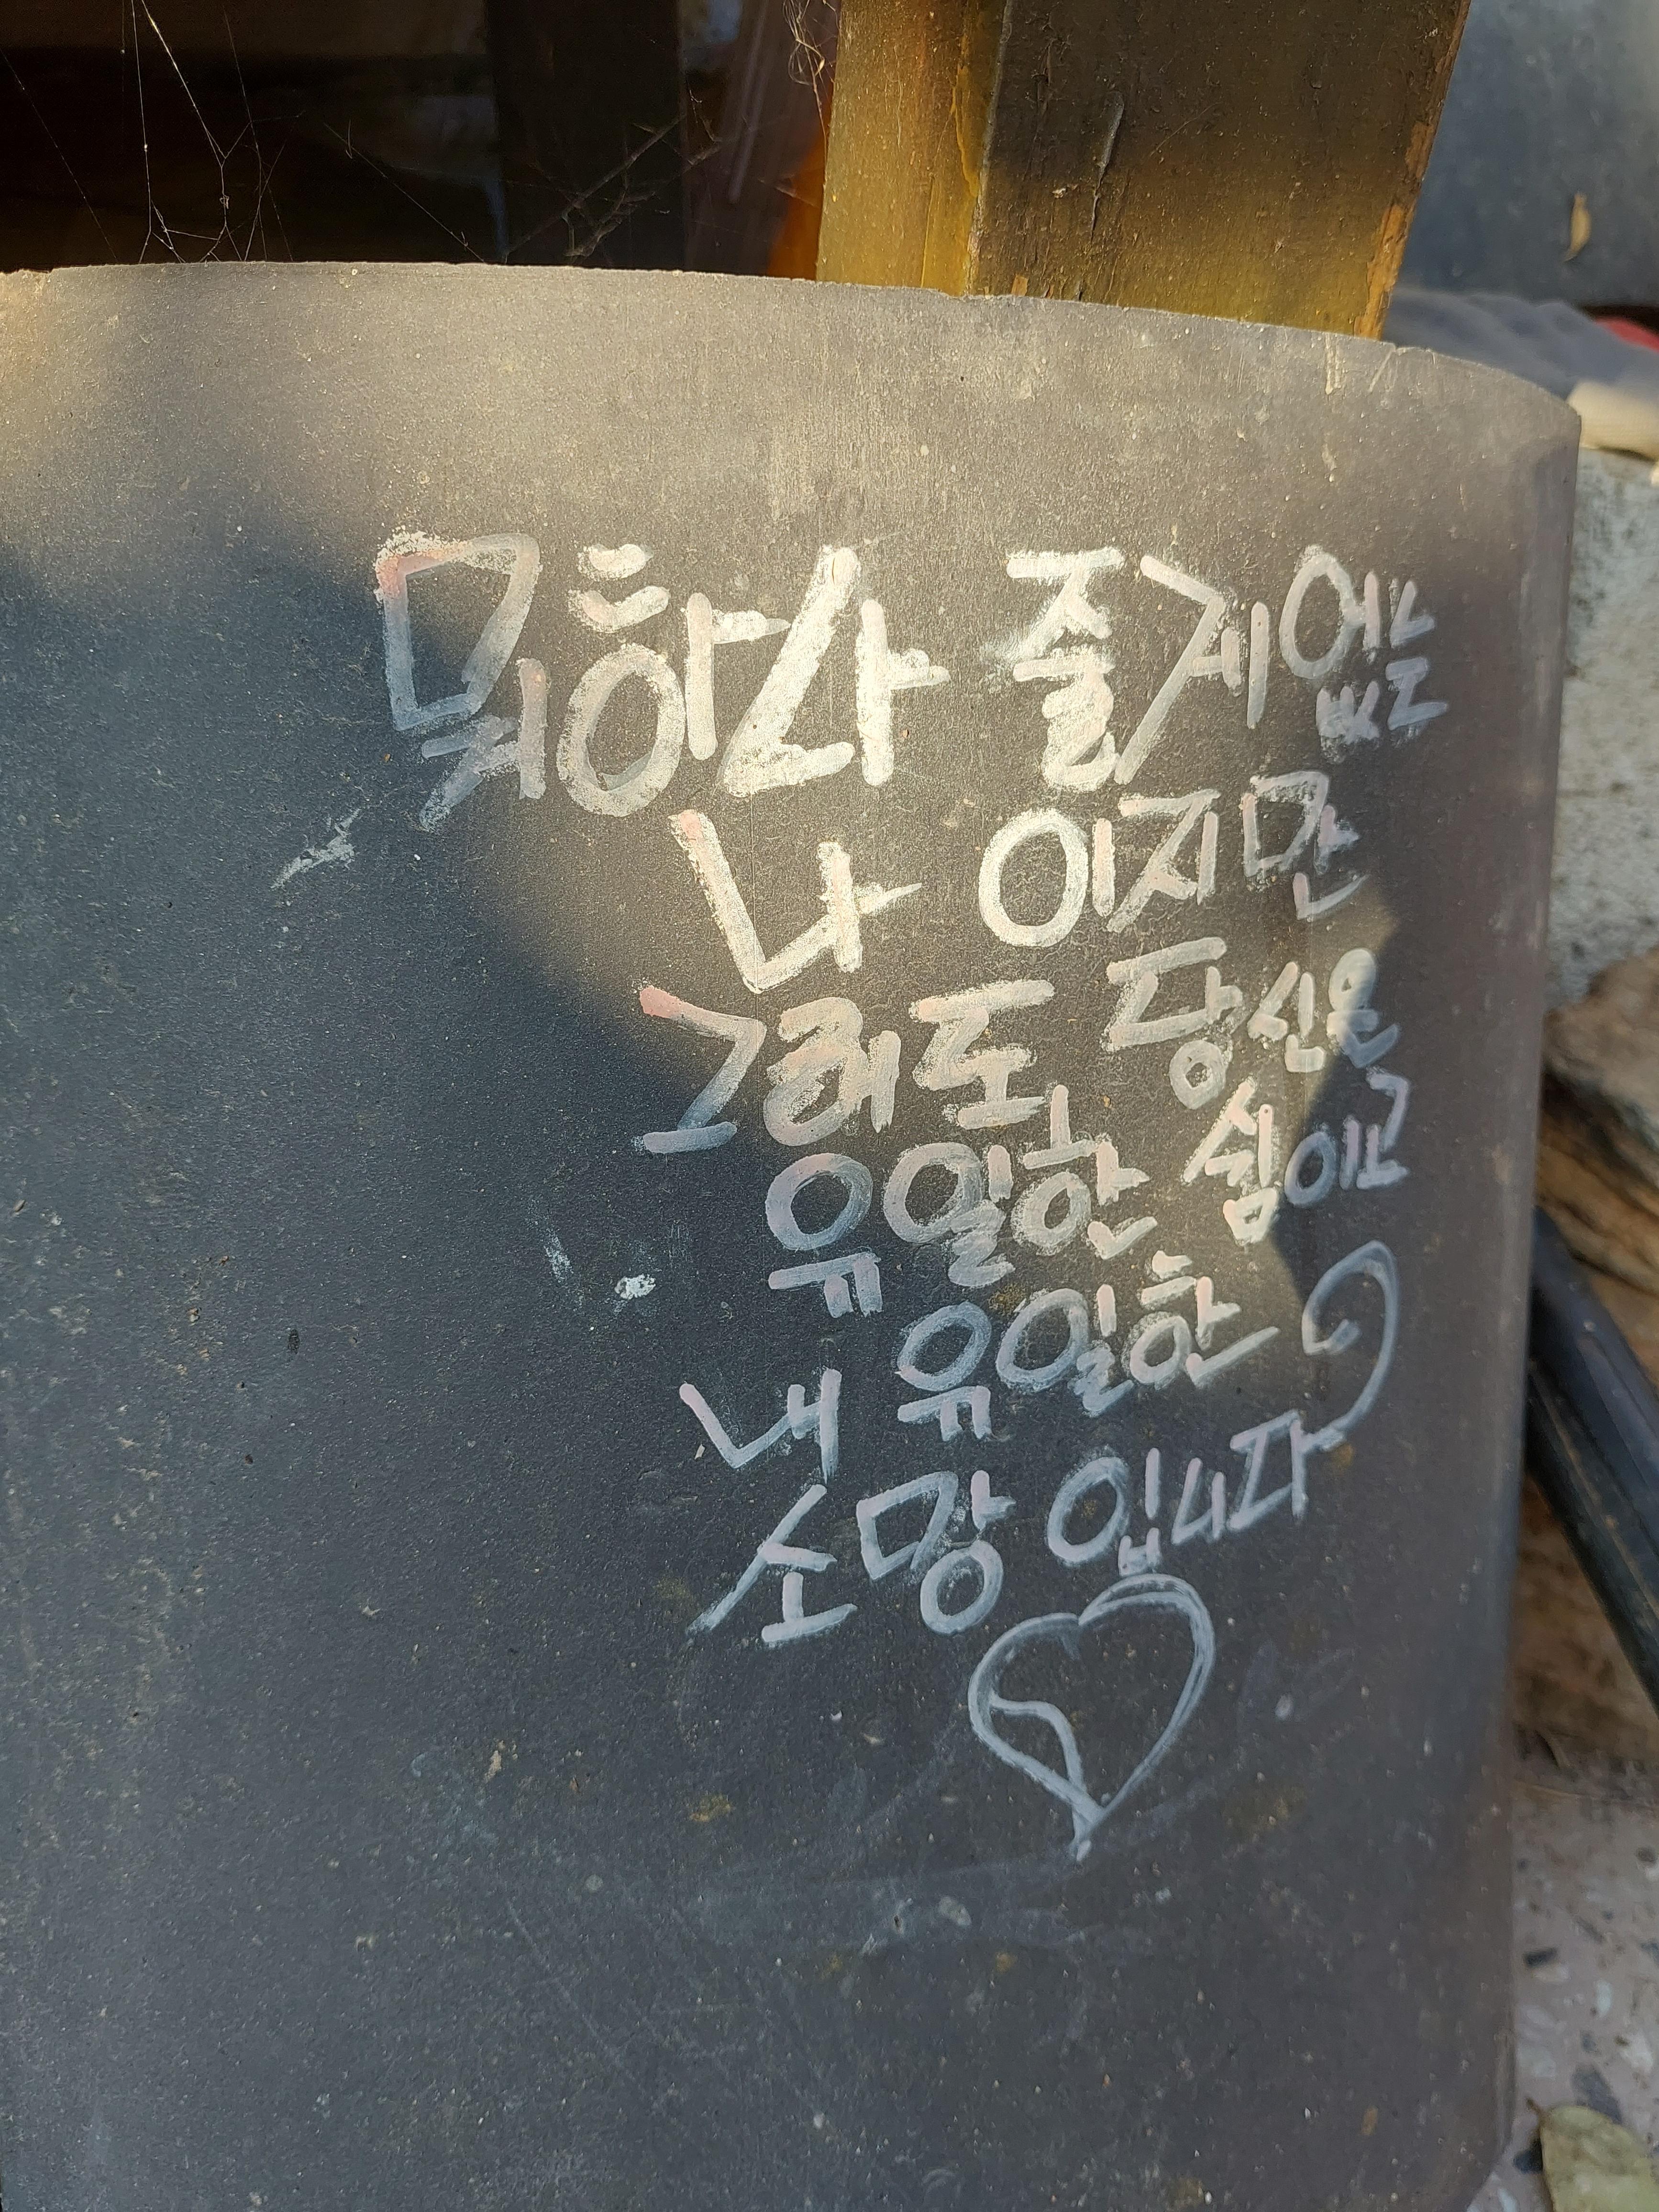 뭐하나 줄게 없는
나 이지만
그래도 당신은
유일한 쉼이고
내 유일한
소망 입니다